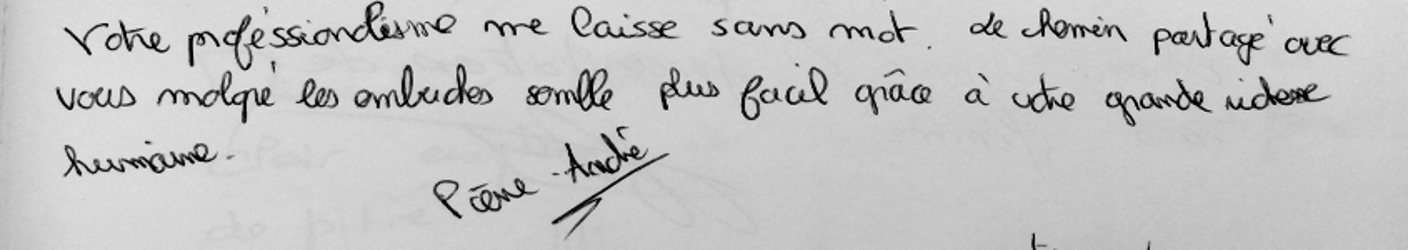 Votre proféssionalisme me laisse sans mot. Le chemin partagé avec
vous malgré les embuches semble plus facil grâce à votre grande richesse
humaine.
Pierre-André